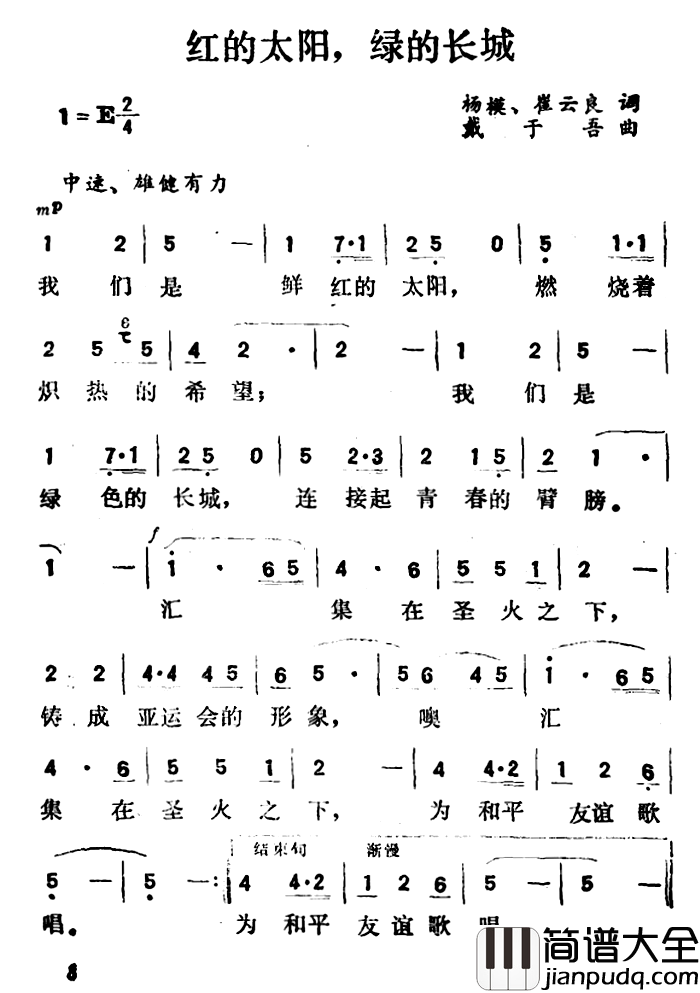 红的太阳，绿的长城
1=E 2/4
杨模、崔云良 词
戴于吾 曲
中速、雄健有力
mp
1 2 | 5 — | 1 7·1 | 2 5 0 | 5 1·1 |
我们是 鲜红的太阳， 燃烧着
2 5 5 | 4 2 · | 2 — | 1 2 | 5 — |
炽热的希望； 我们是
1 7·1 | 2 5 0 | 5 2·3 | 2 1 5 | 2 1 · |
绿色的长城， 连接起青春的臂膀。
f
1 — | 1 · 6 5 | 4 · 6 | 5 5 1 | 2 — |
汇集在圣火之下，
2 2 | 4·4 4 5 | 6 5 · | 5 6 4 5 | 1 · 6 5 |
铸成亚运会的形象， 噢 汇
4 · 6 | 5 5 1 | 2 — | 4 4·2 | 1 2 6 |
集在圣火之下， 为和平友谊歌
结束句 渐慢
5 — | 5 — :| 4 4·2 | 1 2 6 | 5 — | 5 — |
唱。 为和平友谊歌唱
8
简谱大全
jianpudq.com